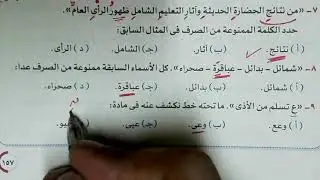 ٧- «من نتائج الحضارة الحديثة وآثار التعليم الشامل ظهور الرأي العام».
حدد الكلمة الممنوعة من الصرف في المثال السابق:
(أ) نتائج. (ب) آثار. (جـ) الشامل. (د) الرأى.
٨- «شمائل - بدائل - عباقرة - صحراء». كل الأسماء السابقة ممنوعة من الصرف عدا:
(أ) شمائل. (ب) بدائل. (جـ) عباقرة. (د) صحراء.
٩- «عِ تسلم من الأذى». ما تحته خط نكشف عنه في مادة:
(أ) وعع. (ب) وعي. (جـ) عيى.
١٥٧